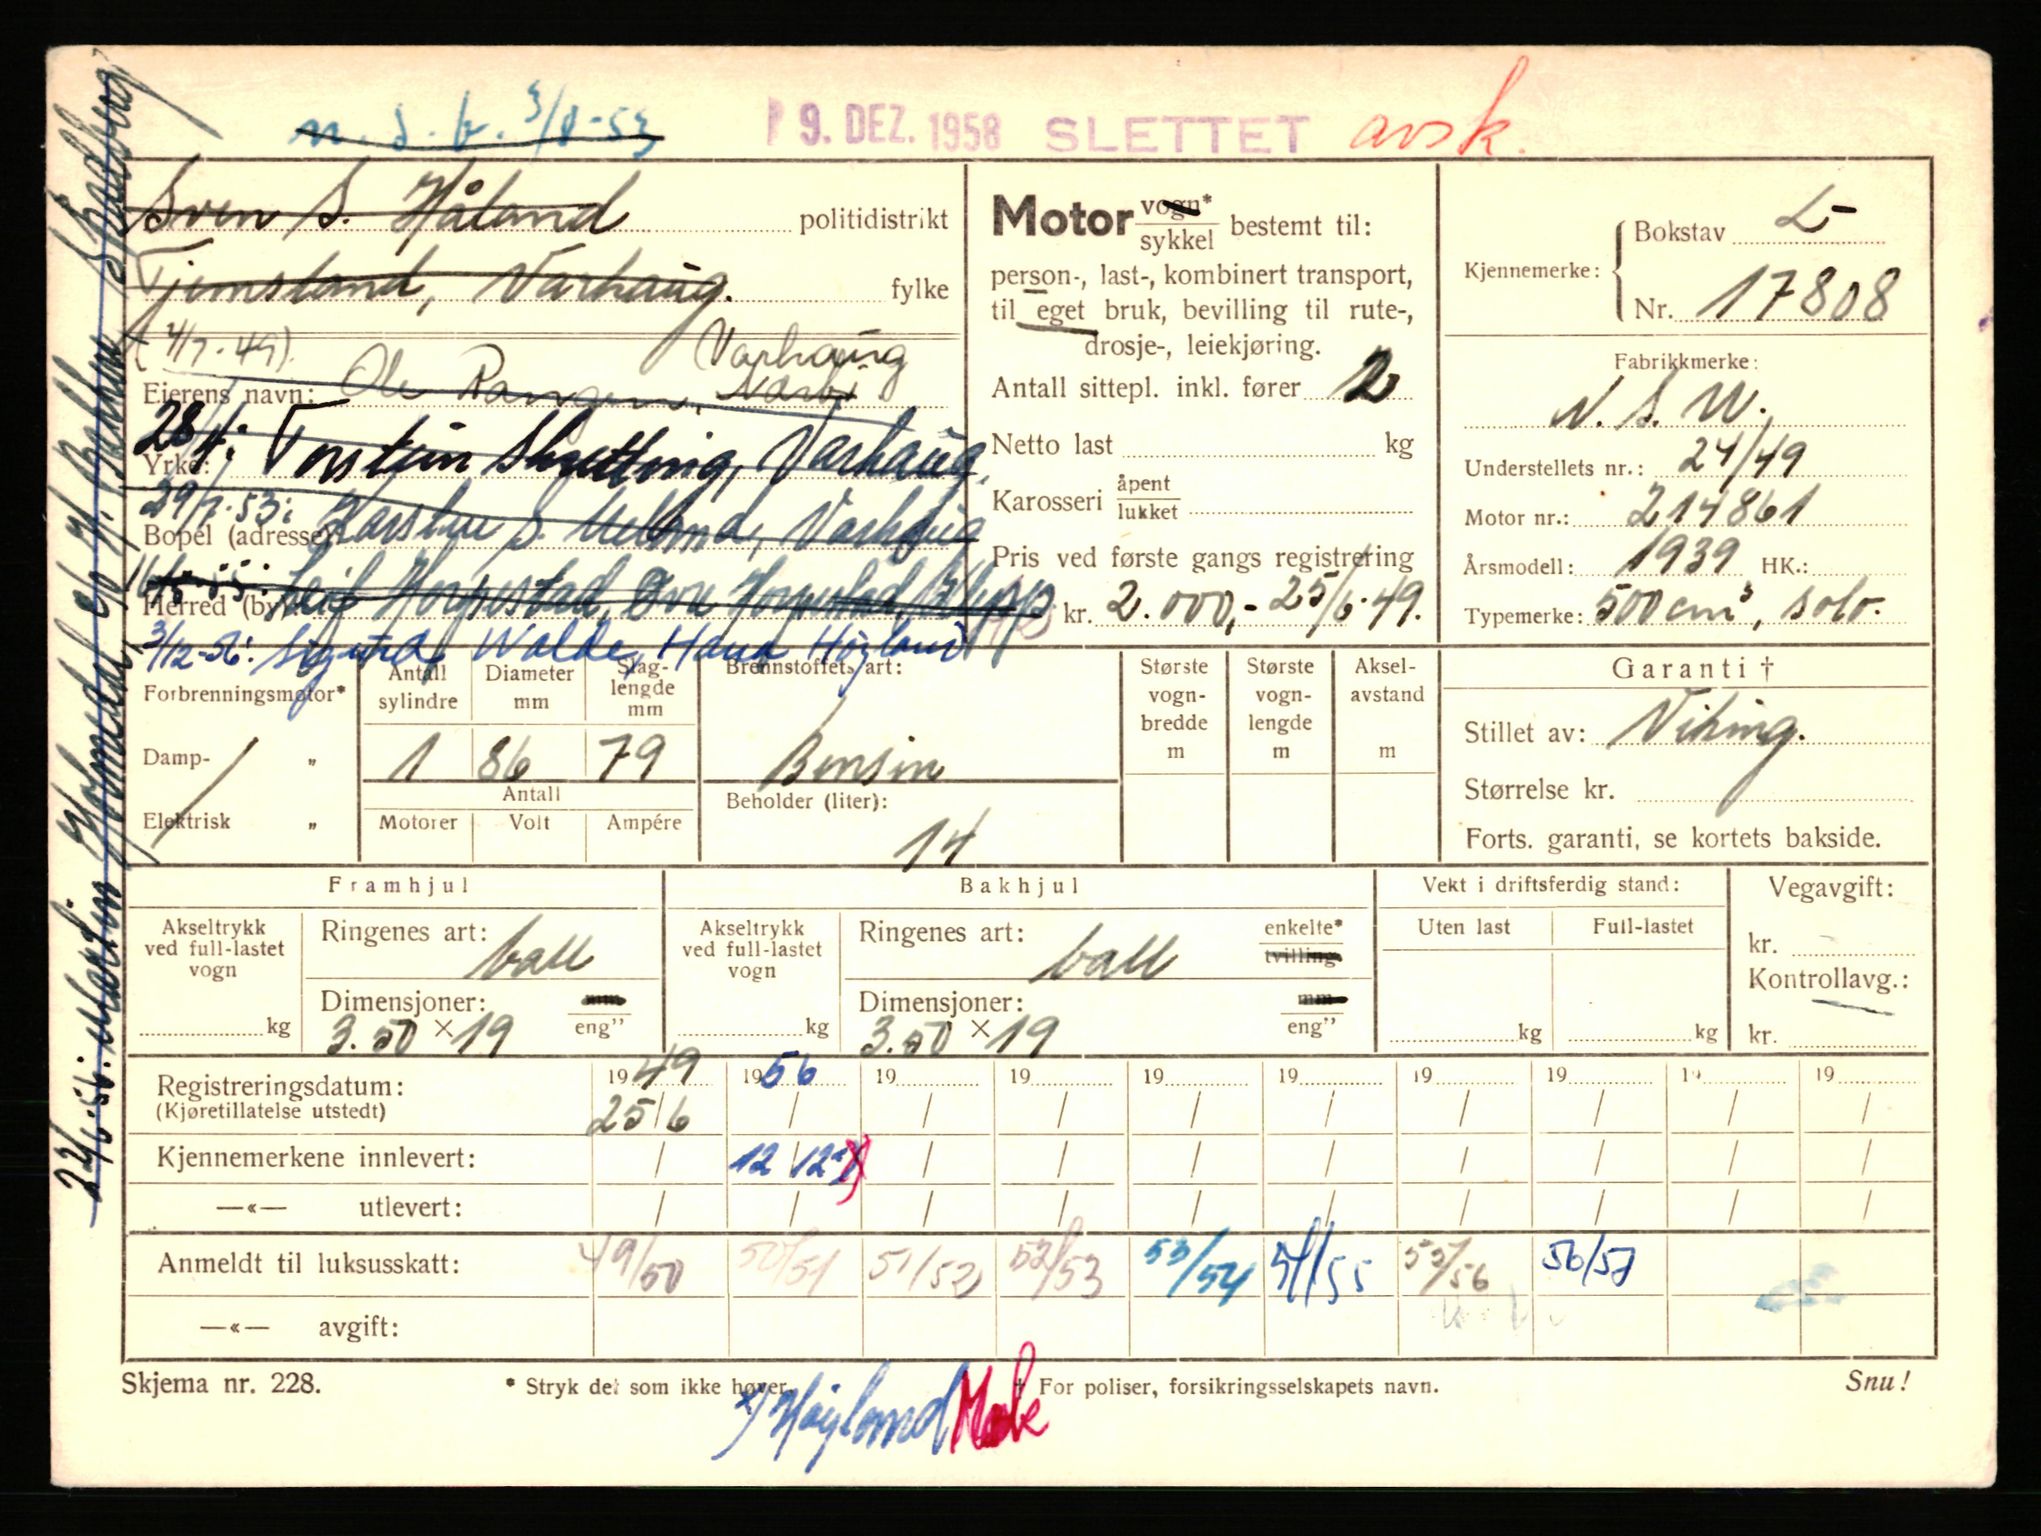 m. s. b. 3/8-53
9. DEZ. 1958 SLETTET avsk.
Sven S. Håland politidistrikt
Tjemsland, Varhaug. fylke
(4/7-49). Varhaug
Eierens navn: Ole Rangen, Nærbø
28/4: Torstein Skretting, Varhaug.
Yrke:
29/7.53: Karsten S. Varhaug
Bopel (adresse)
Leif Horpestad, Klepp
Herred (by):
3/12-56: Sigurd Walde, Hana Høyland
22/6.56: Martin Holmedal, c/o H. Bakken
Motor vogn* sykkel bestemt til:
person-, last-, kombinert transport,
til eget bruk, bevilling til rute-,
drosje-, leiekjøring.
Antall sittepl. inkl. fører 2
Netto last kg
Karosseri åpent lukket
Pris ved første gangs registrering
kr. 2.000,- 25/6.49.
Kjennemerke: Bokstav L-
Nr. 17808
Fabrikkmerke:
N. S. U.
Understellets nr.: 24/49
Motor nr.: 214861
Årsmodell: 1939 HK.:
Typemerke: 500 cm³, solo.
Forbrenningsmotor*
Damp- „
Elektrisk „
Antall sylindre Diameter mm Slag-lengde mm
1 86 79
Antall
Motorer Volt Ampére
Brennstoffets art:
Bensin
Beholder (liter):
14
Største vogn-bredde m Største vogn-lengde m Aksel-avstand m
Garanti †
Stillet av: Viking.
Størrelse kr.
Forts. garanti, se kortets bakside.
Framhjul
Akseltrykk ved full-lastet vogn
kg
Ringenes art: ball
Dimensjoner: mm eng"
3.50 × 19
Bakhjul
Akseltrykk ved full-lastet vogn
kg
Ringenes art: ball enkelte* tvilling
Dimensjoner: mm eng"
3.50 × 19
Vekt i driftsferdig stand:
Uten last Full-lastet
kg kg
Vegavgift:
kr.
Kontrollavg.:
kr.
Registreringsdatum: 1949 1956 19 19 19 19 19 19 19 19
(Kjøretillatelse utstedt) 25/6 / / / / / / / / /
Kjennemerkene innlevert: / 12/12 x) / / / / / / / /
—«— utlevert: / / / / / / / / / /
Anmeldt til luksusskatt: 49/50 50/51 51/52 52/53 53/54 54/55 55/56 56/57
—«— avgift:
Skjema nr. 228. * Stryk det som ikke høver. † For poliser, forsikringsselskapets navn. Snu!
x) Høyland